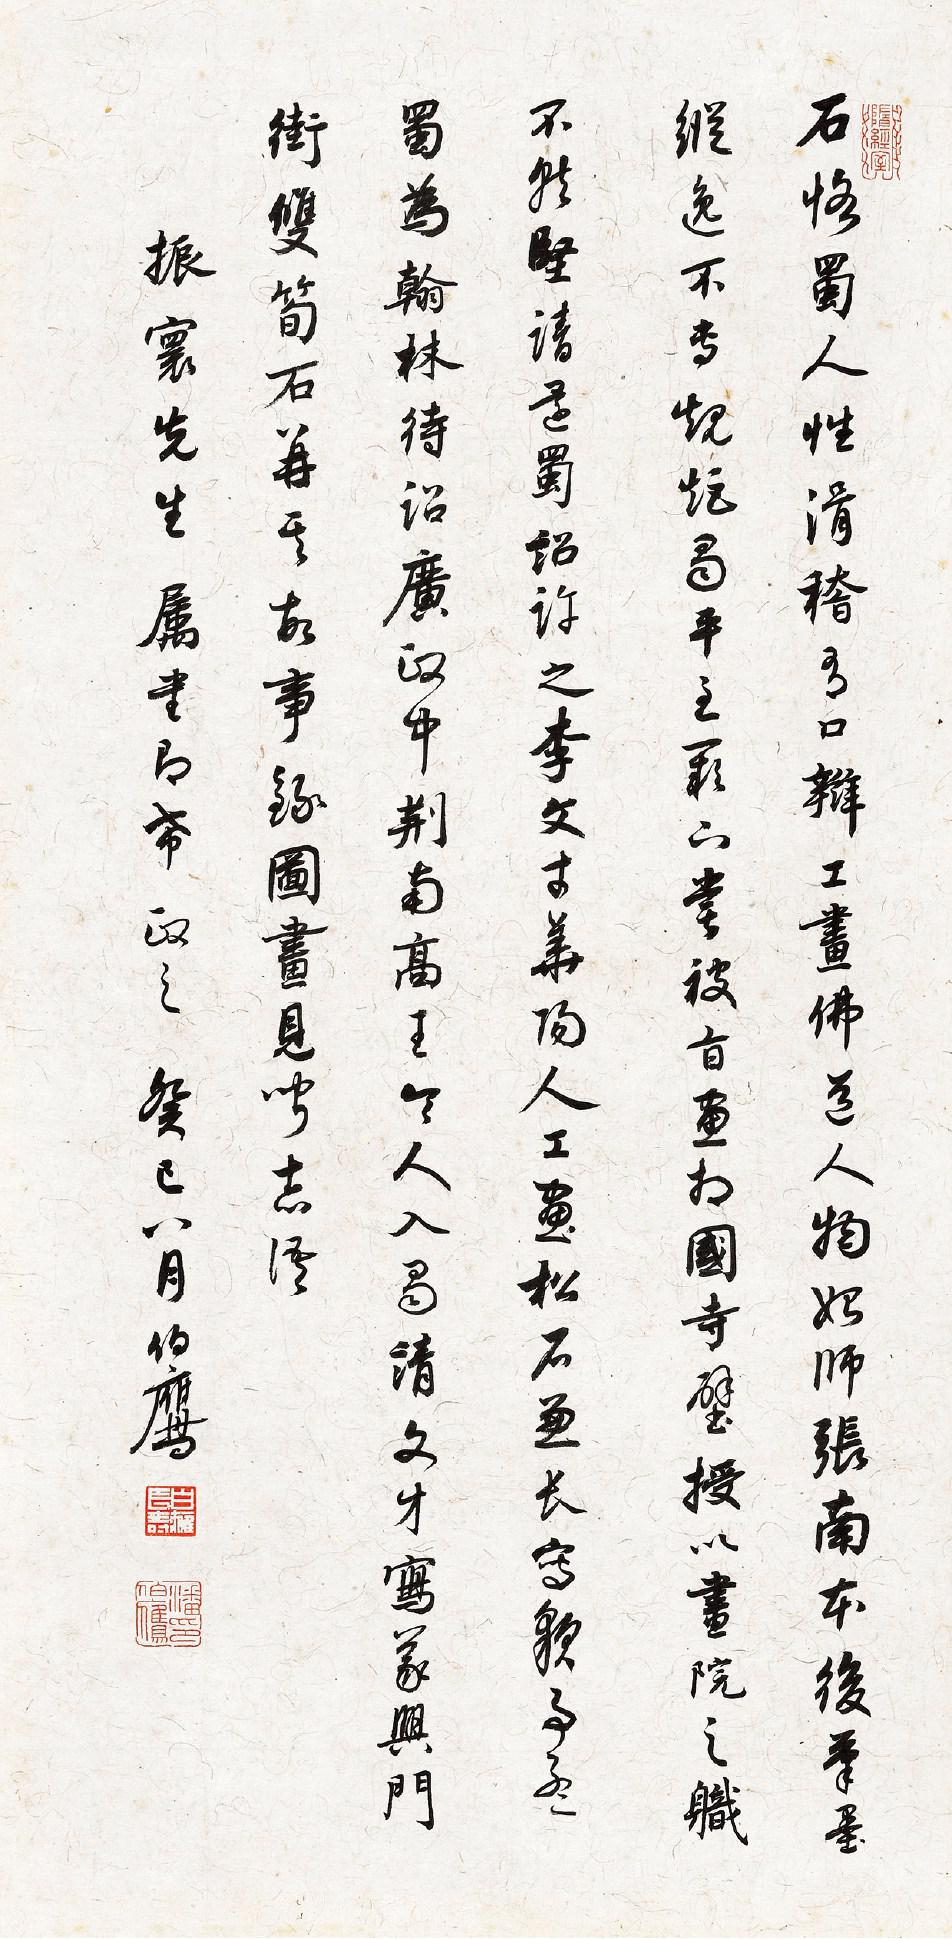 石恪蜀人性滑稽有口辯工畫佛道人物始師張南本後筆墨
縱逸不專規矩蜀平至闕下嘗被旨畫相國寺壁授以畫院之職
不就堅請還蜀詔許之李文才華陽人工畫松石兼長寫貌事孟
蜀為翰林待詔廣政中荊南高王令人入蜀請文才寫義興門
街雙筍石并其故事錄圖畫見聞志語
振寰先生屬書即希政之 癸巳八月伯鷹
潘印伯鷹